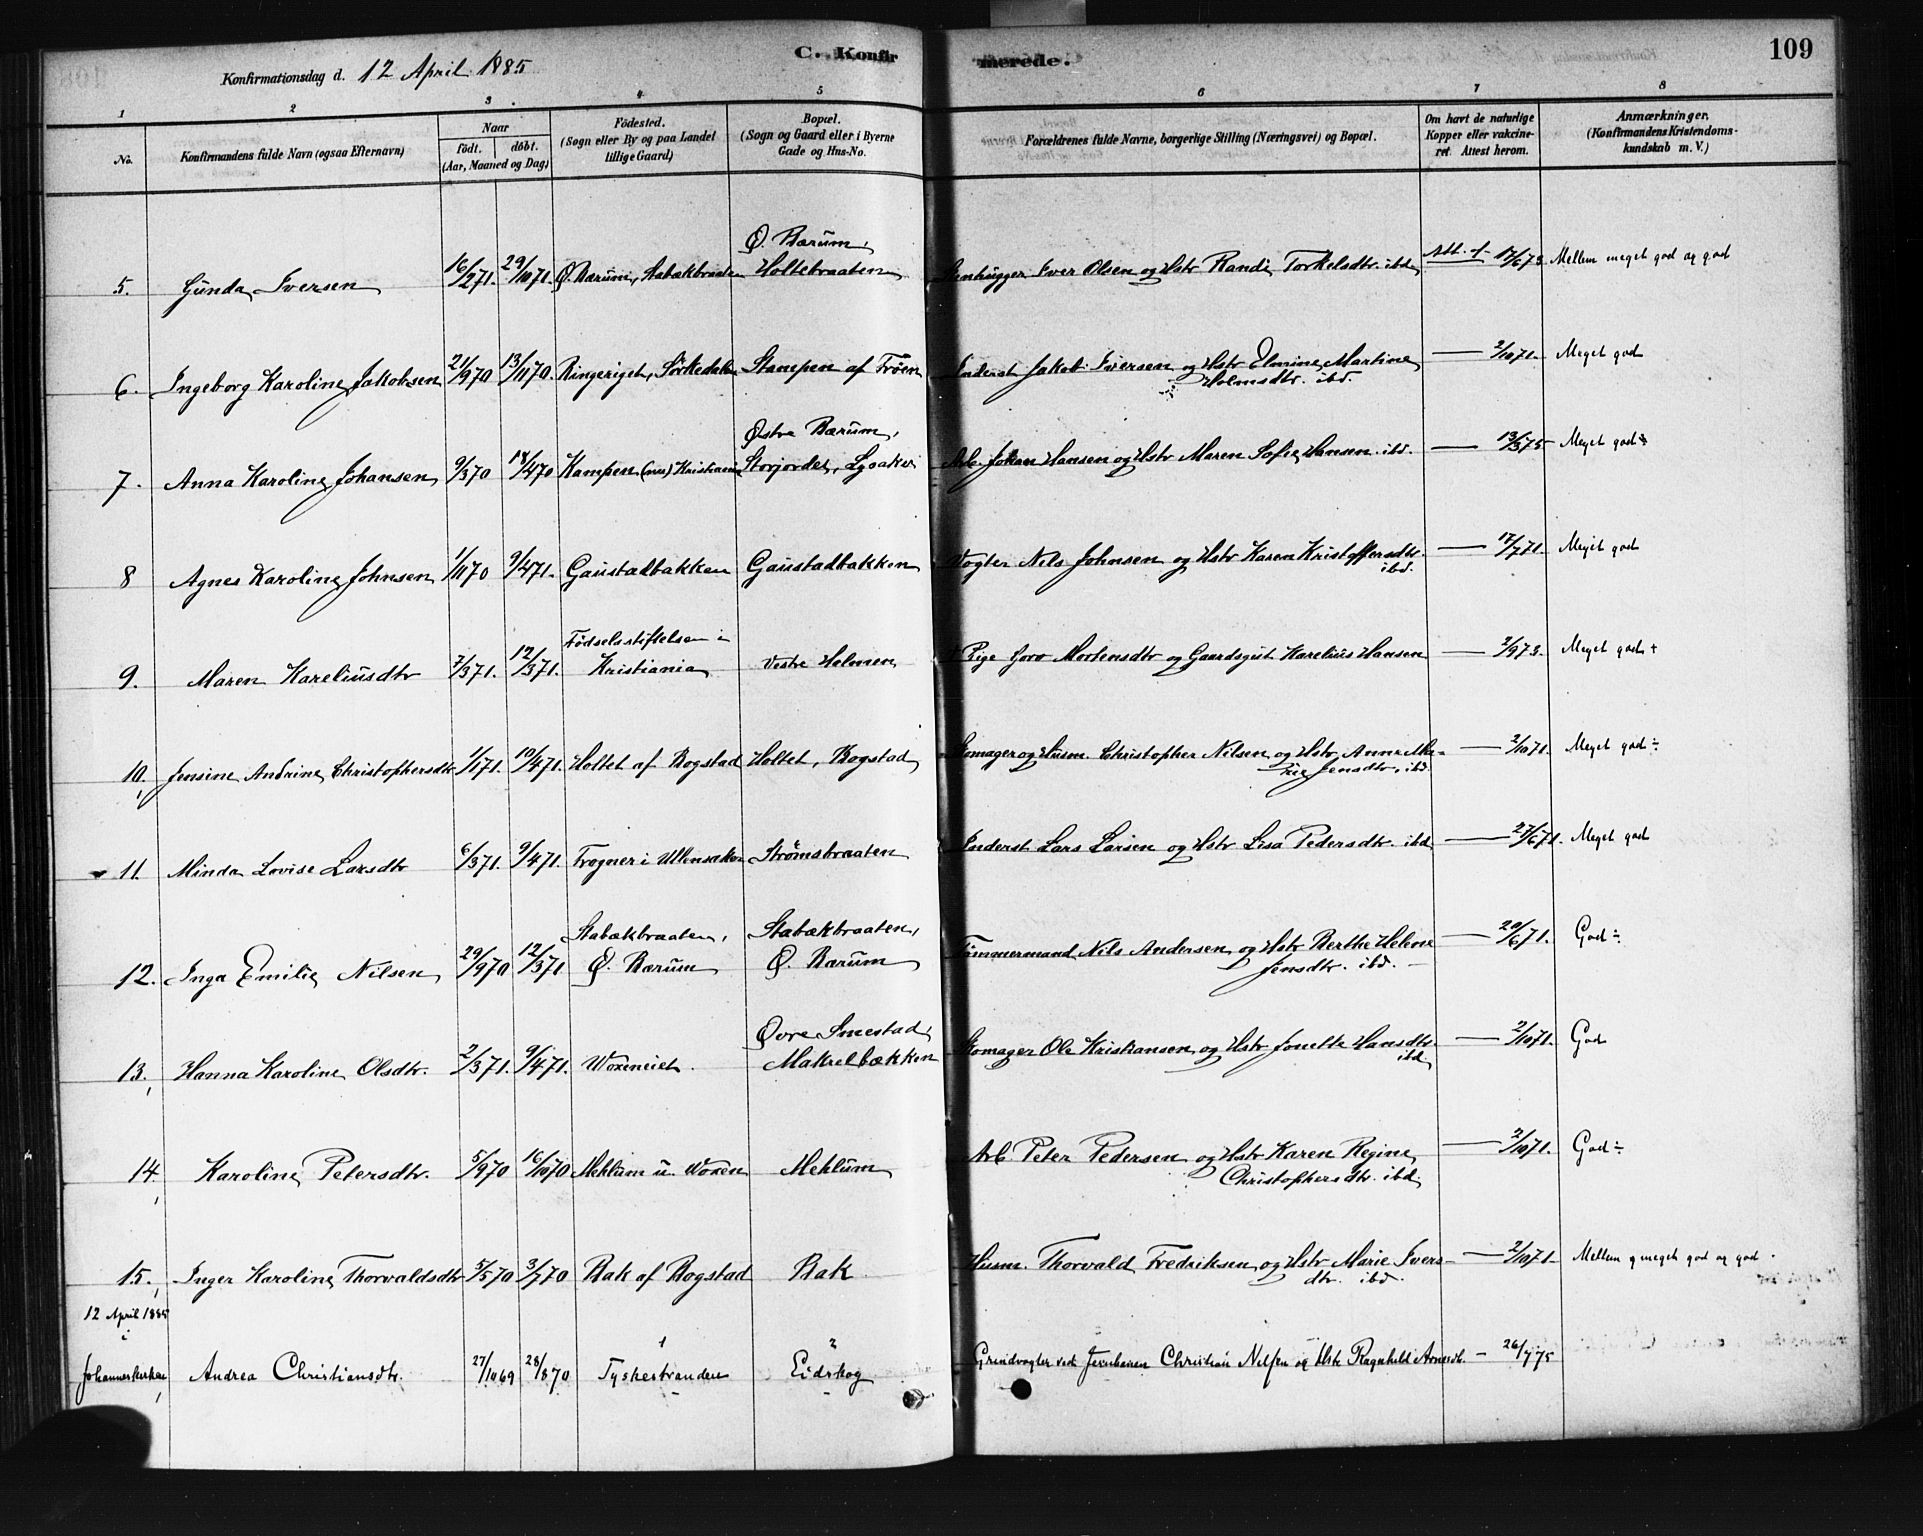 Konfirmationsdag d. 12 April 1885
C. Konfirmerede.
109
1 2 3 4 5 6 7 8
No.
Konfirmandens fulde Navn (ogsaa Efternavn)
Naar
födt. döbt.
(Aar, Maaned og Dag)
Födested.
(Sogn eller By og paa Landet
tillige Gaard)
Bopæl.
(Sogn og Gaard eller i Byerne
Gade og Hus-No.
Forældrenes fulde Navne, borgerlige Stilling (Næringsvei) og Bopæl.
Om havt de naturlige
Kopper eller vakcine-
ret. Attest herom.
Anmærkninger.
(Konfirmandens Kristendoms-
kundskab m. V.)
Ø. Bærum,
5. Gunda Iversen 16/271. 29/1071. Ø. Bærum, Stabækbraaten Holtebraaten Stenhugger Iver Olsen og Hstr Randi Torkelsdtr. ibd. Att. f. 17/673 Mellem meget god og god
6. Ingeborg Karoline Jakobsen 21/970 13/1170 Ringeriget, Sörkedalen Stampen af Frøen Inderst Jakob Iversen og Hstr Elmine Martine — 2/1071. Meget god
Holmsdtr. ibd.
Østre Bærum,
7. Anna Karoline Johansen 9/370 18/470 Kampen Kristiania Storjordet, Lysaker Arb. Johan Hansen og Hstr Maren Sofie Hansen ibd. — 13/375 Meget god
8 Agnes Karoline Johnsen 1/1170 9/471. Gaustadbakken Gaustadbakken Vogter Nils Johnsen og Hstr Karen Kristoffersdtr. — 17/771. Meget god
ibd.
Födselsstiftelsen i
9. Maren Kareliusdtr 7/371. 12/371. Kristiania Vestre Holmen Pige Goro Mortensdtr og Gaardsgut Karelius Hansen — 2/973. Meget god +
10. Jensine Andrine Christophersdtr. 1/171. 10/471. Holtet af Bogstad Holtet, Bogstad Skomager og Husm. Christopher Nilsen og Hstr Anne Ma- — 2/1071. Meget god ÷
rie Jensdtr. ibd.
11. Minda Lovise Larsdtr 6/371. 9/471. Frogner i Ullensaker Strömsbraaten Inderst Lars Larsen og Hstr Lisa Pedersdtr. ibd — 27/671. Meget god
Stabækbraaten, Stabækbraaten,
12. Inga Emilie Nilsen 29/970 12/371 Ø. Bærum Ø. Bærum Tömmermand Nils Andersen og Hstr Berthe Helene — 20/671. God ÷
Jensdtr. ibd. —
Øvre Smestad,
13. Hanna Karoline Olsdtr. 2/371. 9/471. Woxeneiet Makrelbækken Skomager Ole Kristiansen og Hstr Jonette Hansdtr. — 2/1071. God
ibd.
14. Karoline Petersdtr. 5/970 16/1070 Meklum u. Woxen Meklum Arb. Peter Pedersen og Hstr Karen Regine — 2/1071. God ÷
Christophersdtr. ibd.
15. Inger Karoline Thorvaldsdtr 5/570 3/770 Bak af Bogstad Bak Husm. Thorvald Fredriksen og Hstr Marie Ivers- — 2/1071. Mellem meget god og god.
dtr. ibd.
12 April 1885
i
Johanneskirken Andrea Christiansdtr. 27/1069 28/870 Tyskestranden Eidskog Grindvogter ved Jernbanen Christian Nilsen og Hstr Ragnhild Arnesdtr. — 26/775